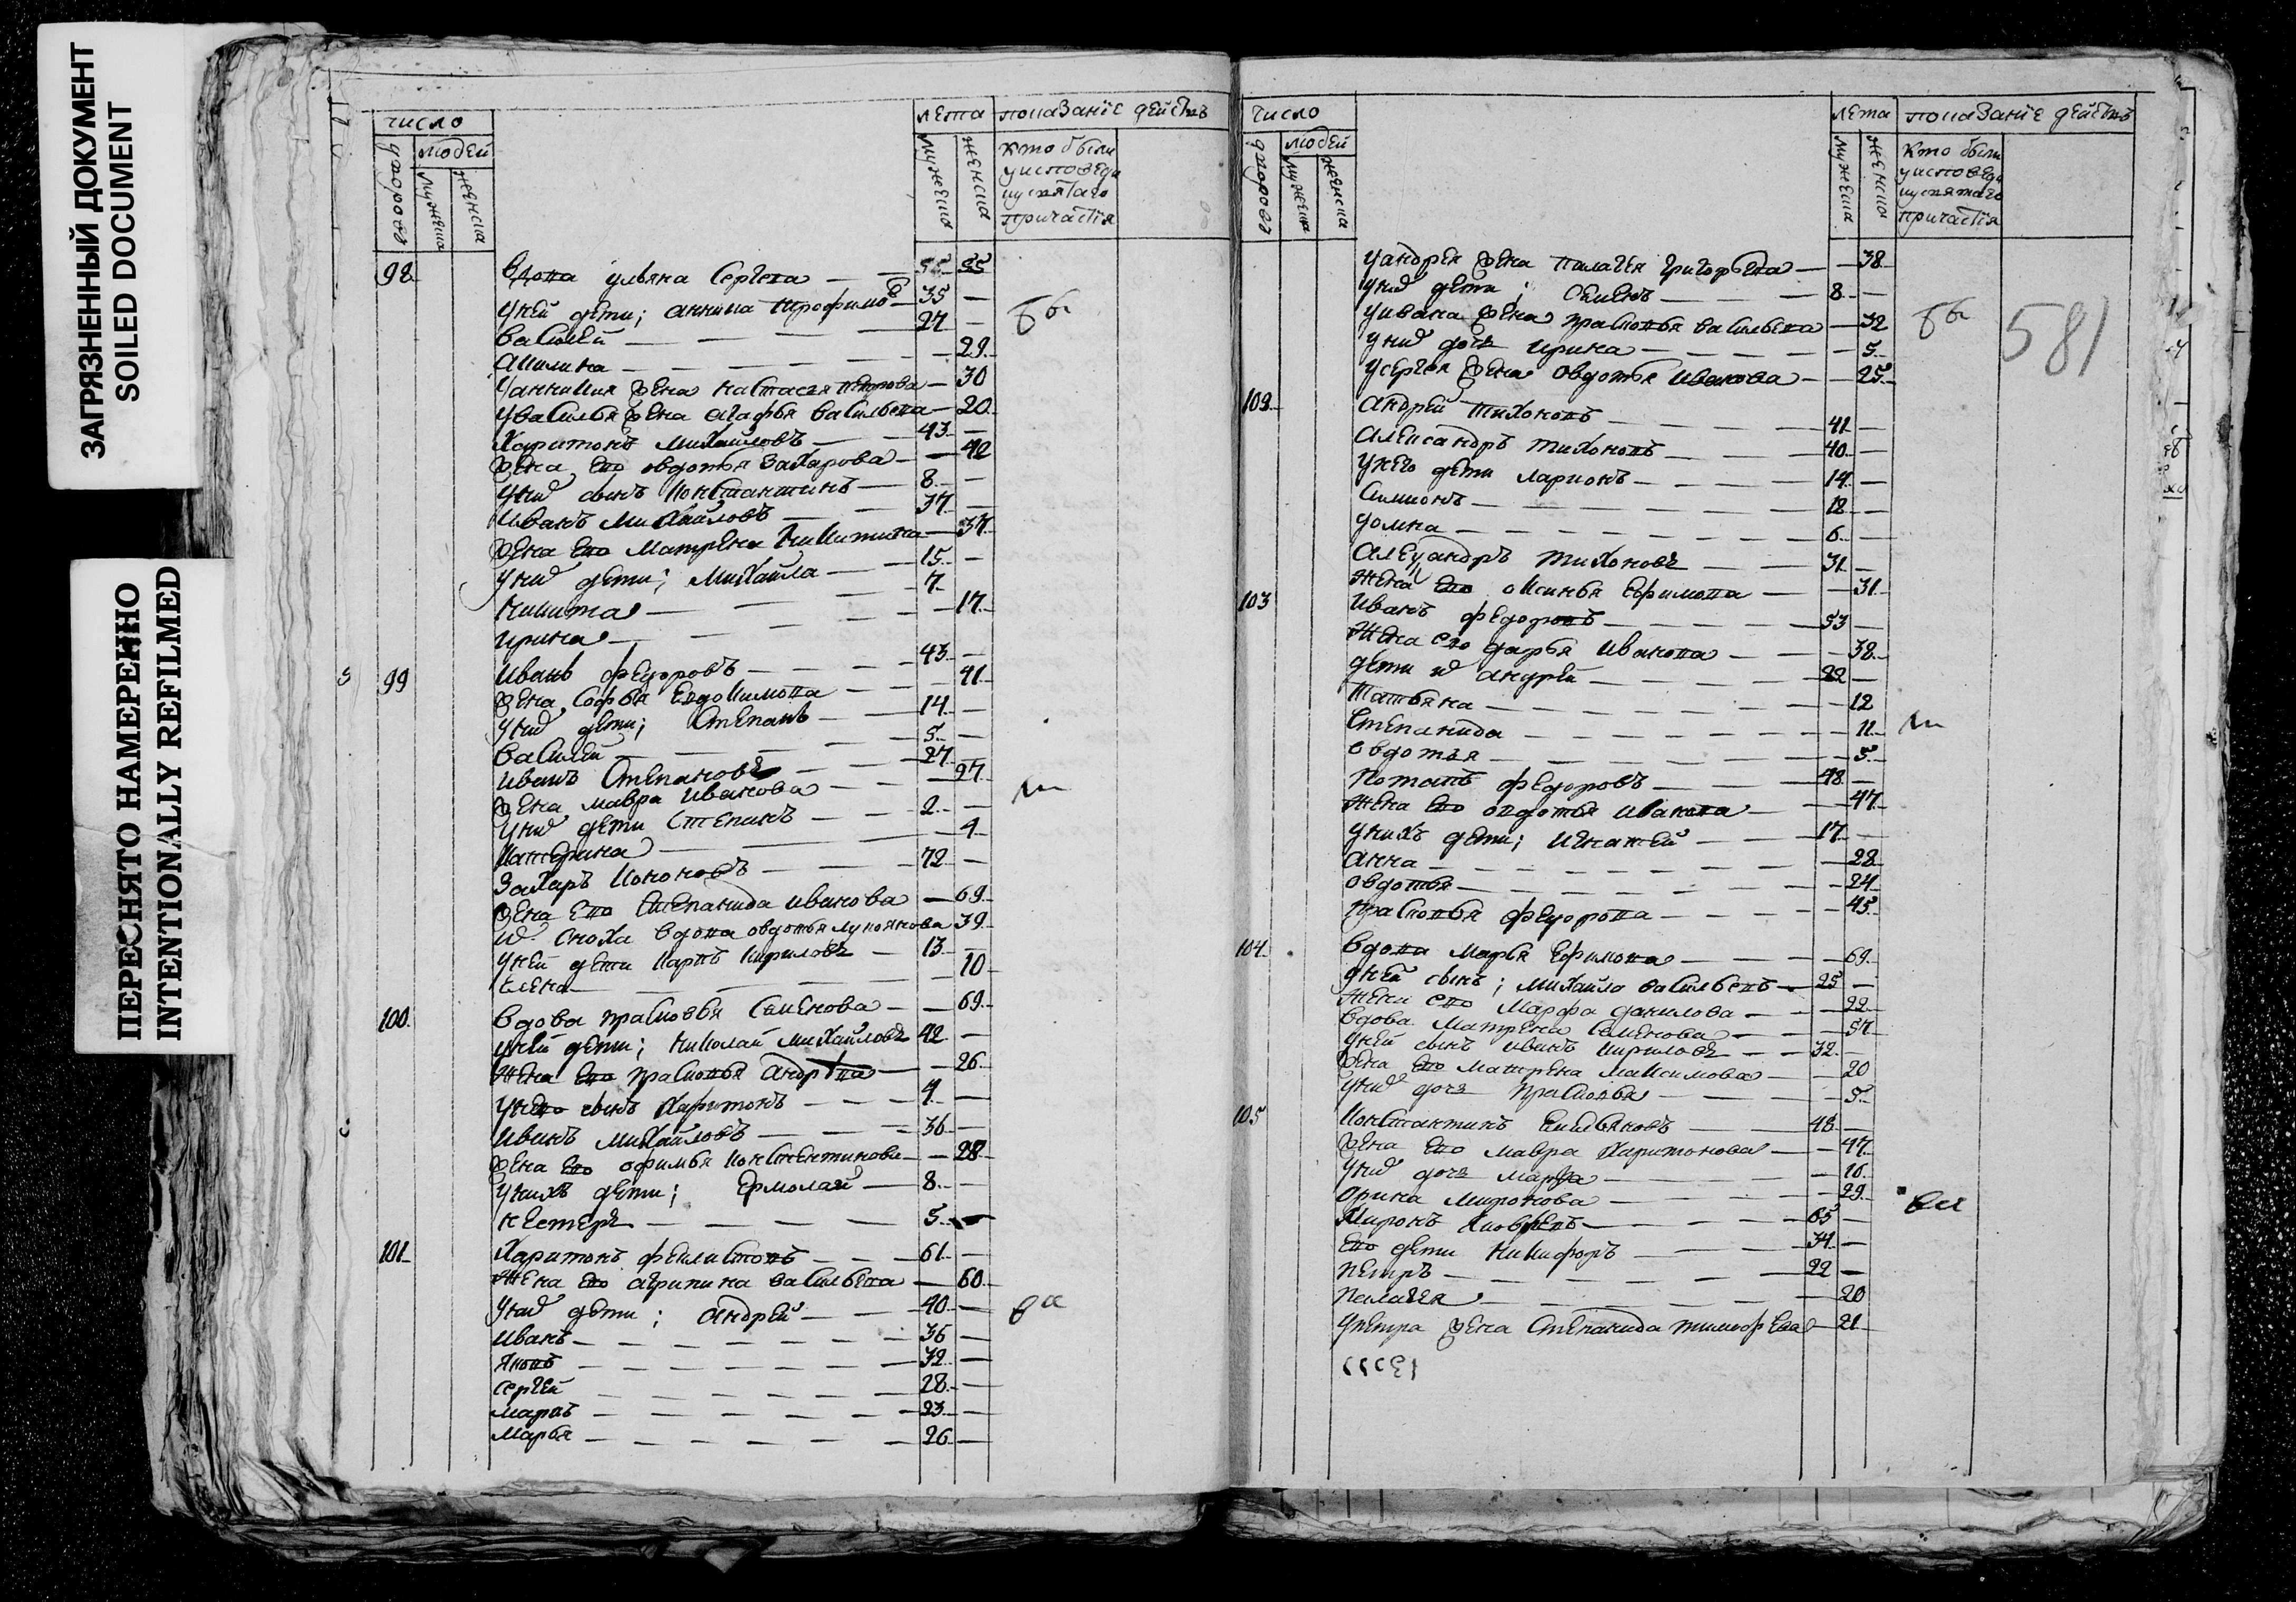 ЗАГРЯЗНЕННЫЙ ДОКУМЕНТ
SOILED DOCUMENT
ПЕРЕСНЯТО НАМЕРЕННО
INTENTIONALLY REFILMED
число
людей
дворовъ
мужеска
женска
лета
мужеска
женска
показанїе действъ
кто были
у исповеди
и у святаго
причастїя
98 вдова ульяна Сергеева — 55 55
у ней дети; аникиа трофимов — 35 —
василей — 27 —
акилина — 29
у аникия жена настасея петрова — 30
у василья жена агафья васильева — 20
Харитонъ Михайловъ — 43 —
жена ево овдотья Захарова — 42
у них сынъ Константинъ — 8 —
Иванъ Михайловъ — 37 —
жена ево Матрена Никитина — 37
у них дети; Михайла — 15 —
Никита — 7
ирина — 17
99 Иванъ федоровъ — 43 —
жена Софья Евдокимова — 41
у них дети; Степанъ — 14 —
василей — 5 —
иванъ Степановъ — 27
жена мавра Иванова — 27
у них дети Степанъ — 2 —
Катерина — 4
Захаръ Кононовъ — 72 —
жена ево Степанида иванова — 69
их сноха вдова овдотья лукоянова 39
у ней дети Карпъ Кириловъ — 13 —
елена — 10
100 вдова прасковья Семенова — 69
у ней дети; Николай Михайловъ 42 —
жена ево прасковья андрева — 26
у нево сынъ Харитонъ — 4 —
Иванъ Михайловъ — 36 —
жена ево офимья Константинова — 28
у нихъ дети; Ермолай — 8 —
Нестеръ — 5 —
101 Харитонъ феклистовъ — 61 —
жена ево агрипина васильева — 60
у них дети; андрей — 40 —
иванъ — 36 —
яковъ — 32 —
сергей — 28 —
маркъ — 23 —
марья — 26 —
число
людей
дворовъ
мужеска
женска
лета
мужеска
женска
показанїе действъ
кто были
у исповеди
и у святаго
причастїя
у андрея жена пилагея григорьева — 38
у них дети; Семенъ — 8 —
у ивана жена прасковья васильева — 32
у них дочь ирина — 5
у сергея жена овдотья иванова — 25
581
102 андрей тихоновъ — 41 —
александръ тихоновъ — 40 —
у него дети ларионъ — 14 —
Симионъ — 12 —
домна — 6 —
александръ тихоновъ — 31 —
жена ево оксинья Ефимова — 31
103 Иванъ федоровъ — 53 —
жена ево дарья иванова — 38
дети их андрей — 22 —
татьяна — 12
Степанида — 11
овдотья — 5
потапъ федоровъ — 48 —
жена ево овдотья иванова — 47
у нихъ дети; игнатей — 17 —
анна — 28
овдотья — 24
прасковья федорова — 45
104 вдова марья Ефимова — 69
у ней сынъ; михайла васильевъ — 25 —
жена ево марфа данилова — 22
вдова матрена Семенова — 57
у ней сынъ иванъ кириловъ — 32 —
жена ево матрена максимова — 20
у них дочь прасковья — 5
105 Константинъ Емельяновъ — 48 —
жена ево мавра Харитонова — 47
у них дочь марфа — 16
орина миронова — 29
миронъ — 65 —
ево дети никифоръ — 34 —
петръ — 22 —
пилагея — 20
у петра жена степанида тимофева — 21